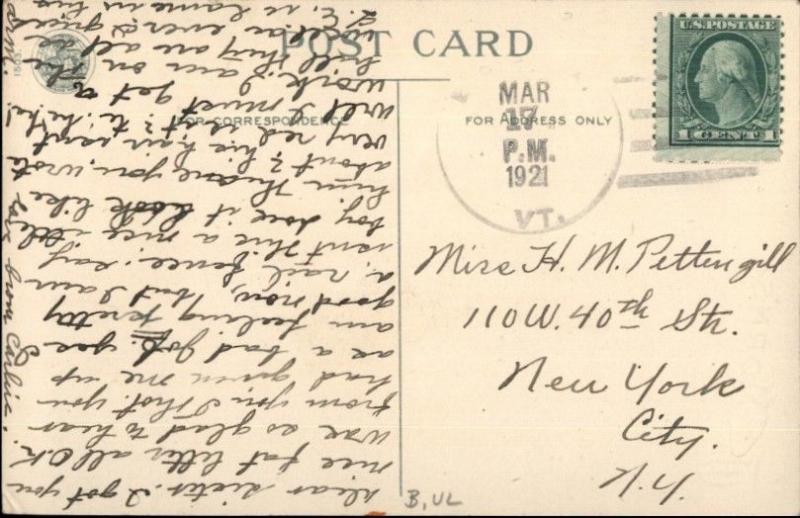 POST CARD
FOR CORRESPONDENCE
FOR ADDRESS ONLY
U.S. POSTAGE
1 CENT 1
MAR
17
P.M.
1921
VT.
Miss H. M. Pettengill
110 W. 40th Str.
New York
City.
N.Y.
Dear sister. I got you
nice fat letter all O.K.
was so glad to hear
from you I thot you
had given me up
as a bad job. yes I
am feeling pretty
good now, but I am
a rail fence. say
isn't this a nice little
boy, dose it look like
him one you wrote
about & his hair isn't
very red isn't?
will I must get a
work. I am on the
hill they are all
well as ever
love from
B, VL